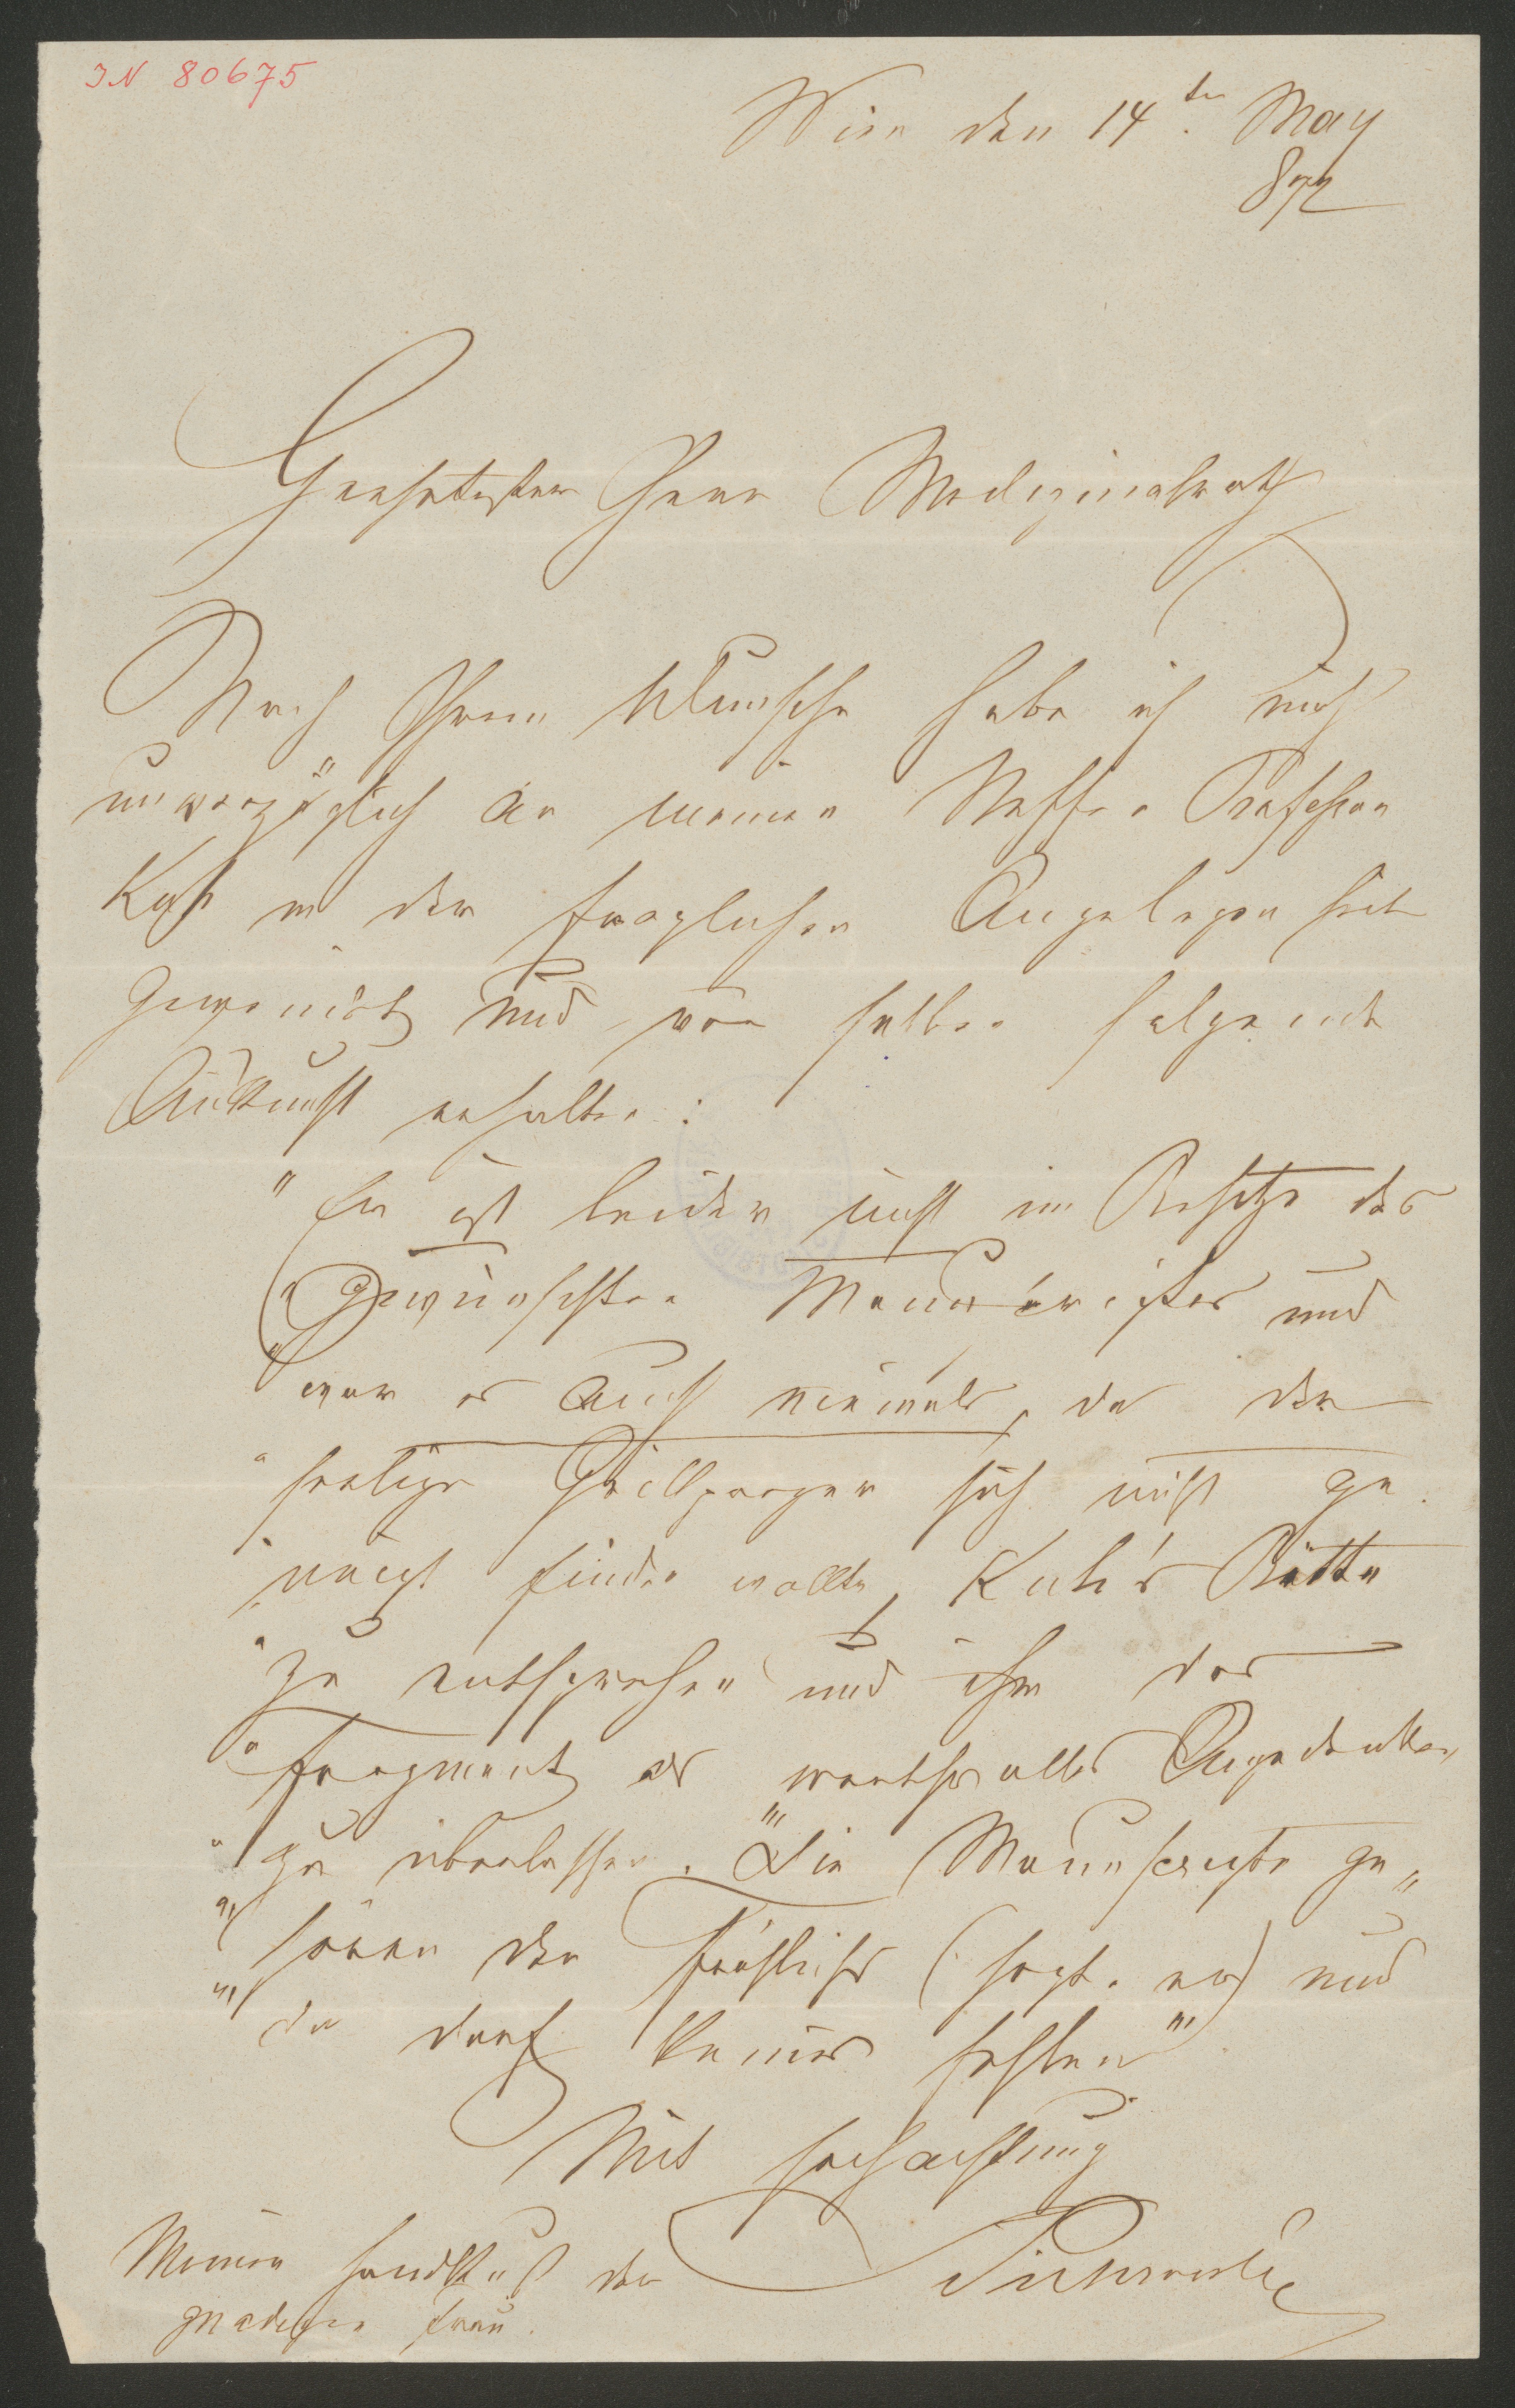 IN 80675
Wien den 14ten May
872
Geehrtester Herr Medizinalrath
Nach Ihrem Wunsche habe ich mich
unverzüglich an meinen Neffen Professor
Kuh in der fraglichen Angelegenheit
gewendet und von selben folgende
Auskunft erhalten:
"Er ist leider nicht im Besitze des
"gewünschten Manuscriptes und
"war es auch niemals, da der
"seelige Grillparzer sich nicht ge
"neigt finden wollte, Kuh's Bitte
"zu entsprechen und ihm das
"Fragment als werthvolles Angedenken
"zu überlassen. "'Die Manuscripte ge„
"'hören den Fröhlichs (sagt. er) und
"'da darf keines fehlen"'
Mit Hochachtung
Meinen Handkuß der
gnädigen Frau.